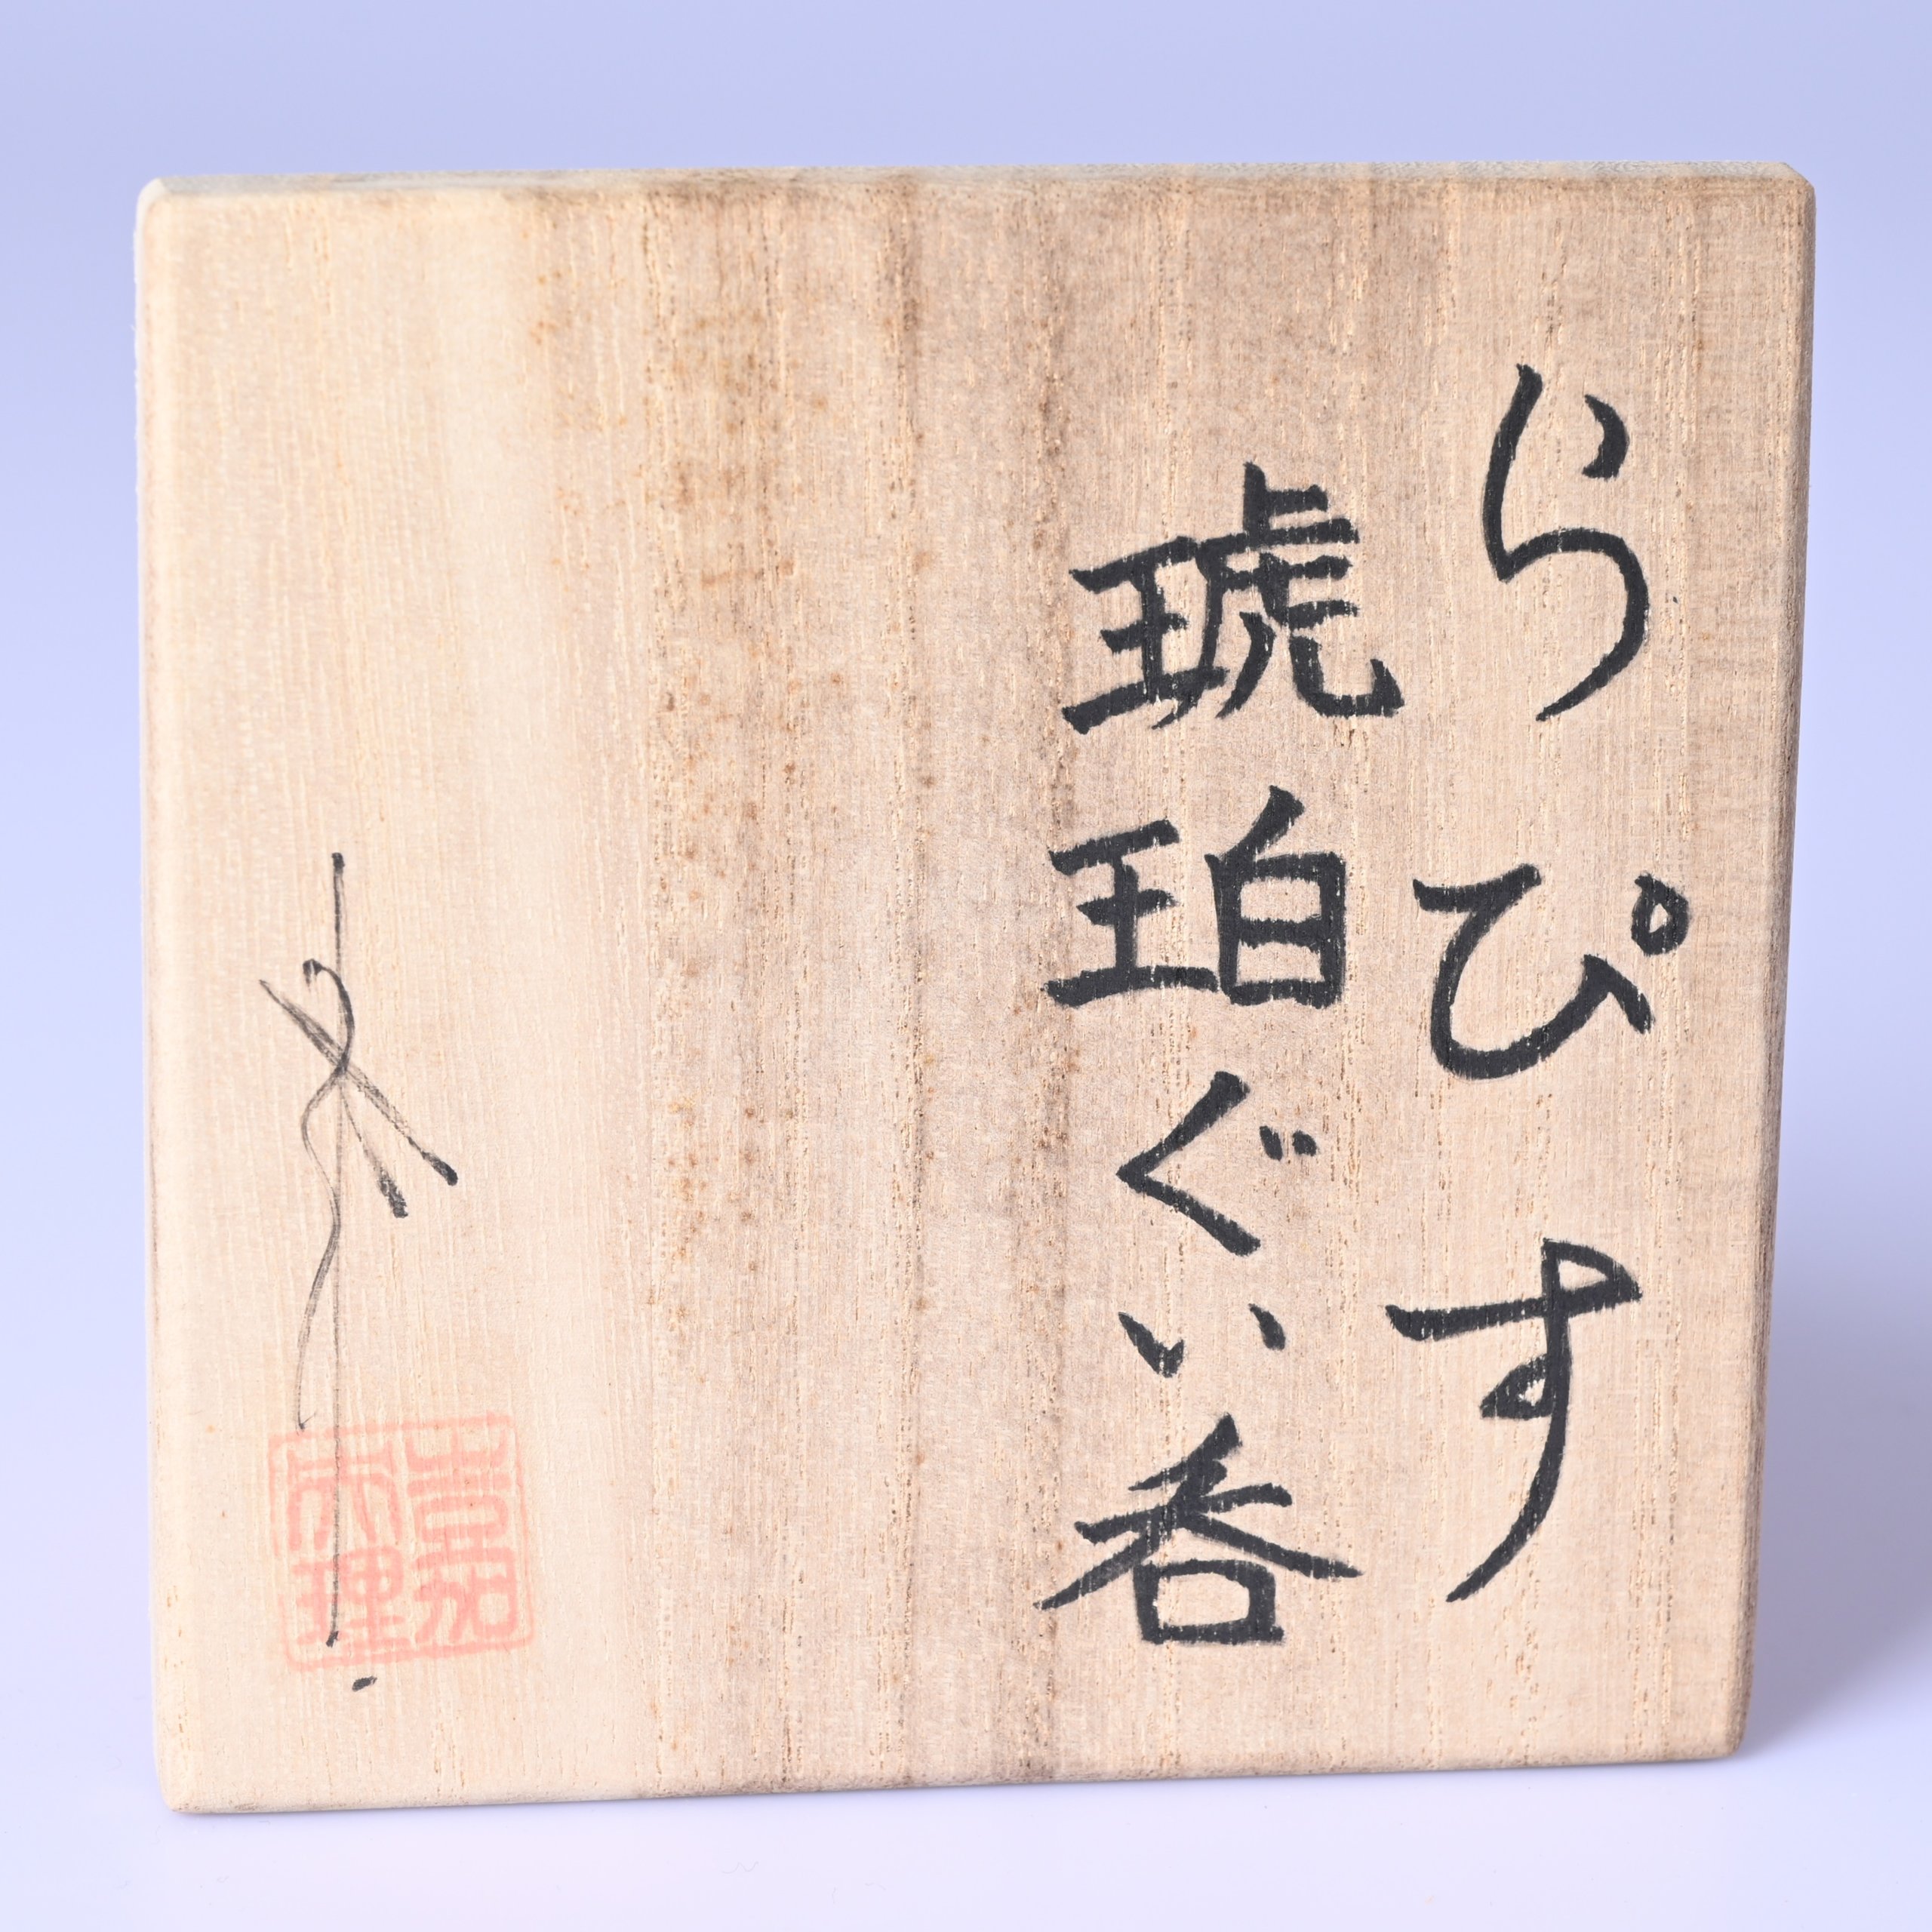 らぴす
琥珀ぐい呑